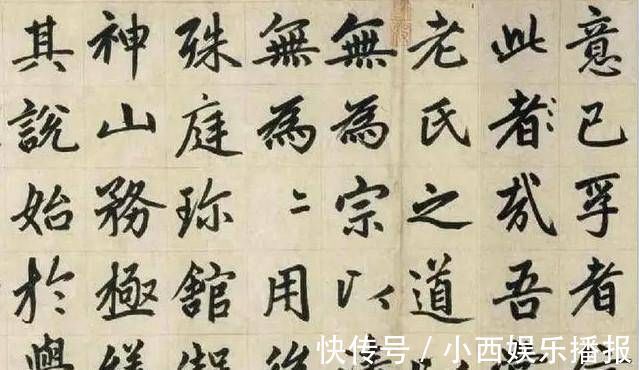 意已孚者
此者哉吾
老氏之道
無為宗以
無為〻用
殊庭珍舘
神山務極
其說始於
快传号 / 小西娱乐播报